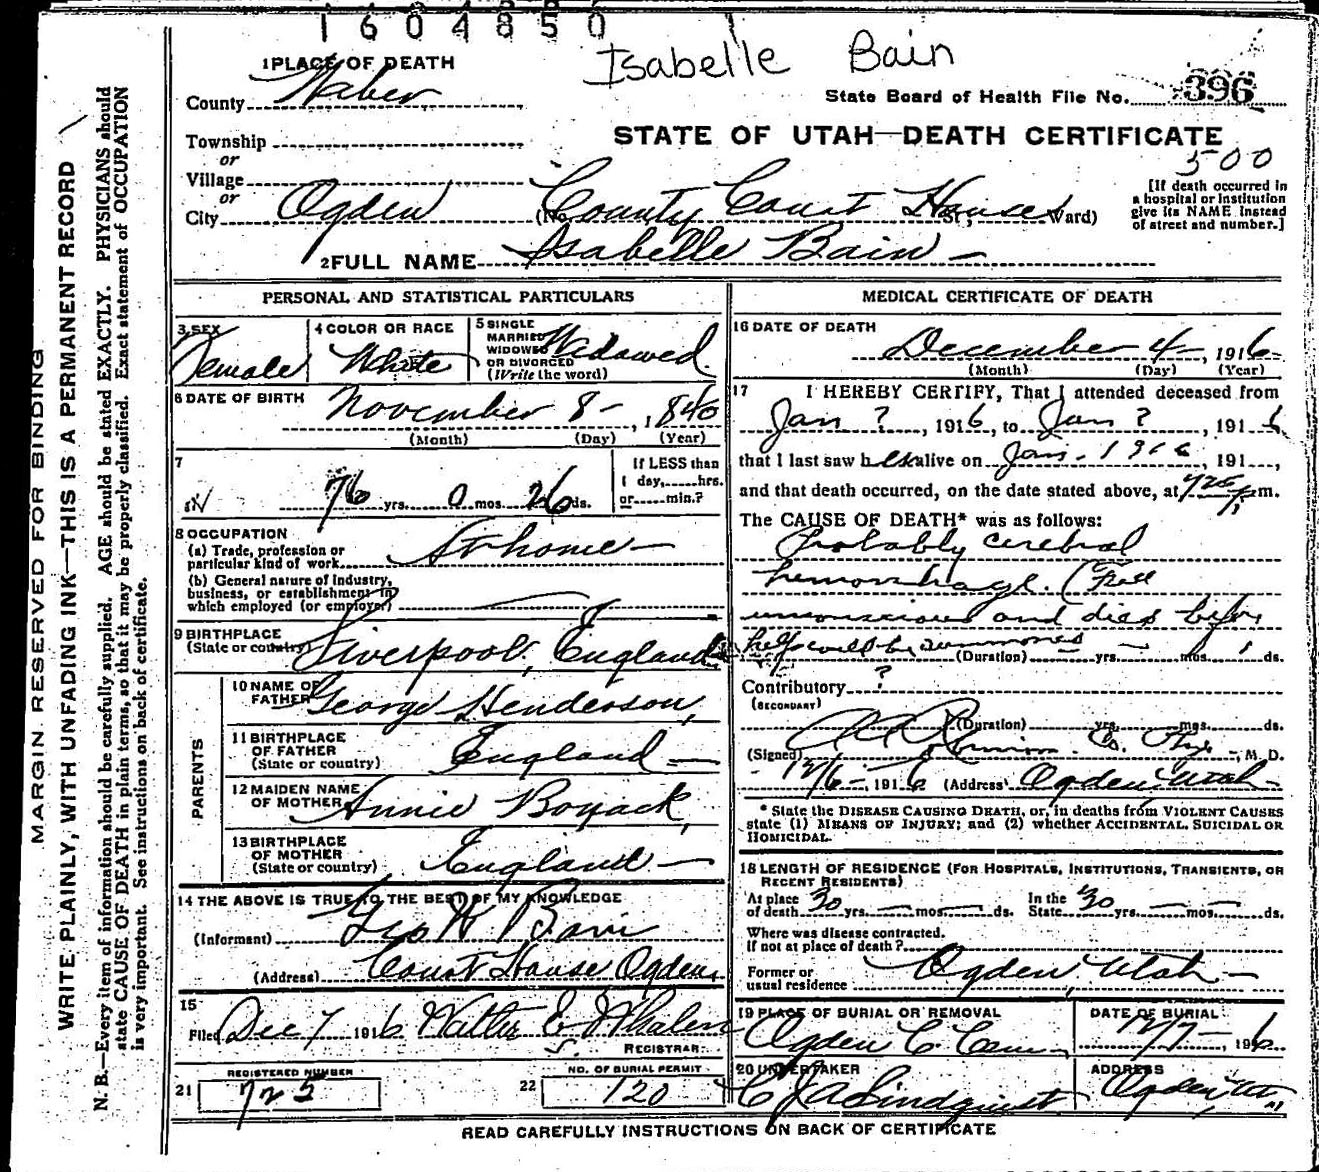 1604850
Isabelle Bain
1 PLACE OF DEATH
County Weber
State Board of Health File No. 396
Township
or
Village
or
City Ogden (No. County Court House St.; Ward)
STATE OF UTAH—DEATH CERTIFICATE
500
[If death occurred in
a hospital or institution
give its NAME instead
of street and number.]
2 FULL NAME Isabelle Bain
PERSONAL AND STATISTICAL PARTICULARS
3 SEX Female
4 COLOR OR RACE White
5 SINGLE
MARRIED
WIDOWED
OR DIVORCED
(Write the word) Widowed
6 DATE OF BIRTH November 8 -, 1840
(Month) (Day) (Year)
7
76 yrs. 0 mos. 26 ds.
If LESS than
1 day, hrs.
or min.?
8 OCCUPATION
(a) Trade, profession or
particular kind of work At home
(b) General nature of industry,
business, or establishment in
which employed (or employer)
9 BIRTHPLACE
(State or country) Liverpool, England
PARENTS
10 NAME OF
FATHER George Henderson,
11 BIRTHPLACE
OF FATHER
(State or country) England
12 MAIDEN NAME
OF MOTHER Annie
13 BIRTHPLACE
OF MOTHER
(State or country) England
14 THE ABOVE IS TRUE TO THE BEST OF MY KNOWLEDGE
(Informant) Geo Bain
(Address) Court House Ogden,
15
Filed Dec 7 1916 Walter E Whalen
REGISTRAR.
REGISTERED NUMBER
21 725
NO. OF BURIAL PERMIT
22 120
MEDICAL CERTIFICATE OF DEATH
16 DATE OF DEATH
December 4 -, 1916
(Month) (Day) (Year)
17 I HEREBY CERTIFY, That I attended deceased from
Jan ?, 1916, to Jan ?, 1916
that I last saw her alive on Jan - 1916, 191 ,
and that death occurred, on the date stated above, at 725 p m.
The CAUSE OF DEATH* was as follows:
Probably cerebral
hemorrhage. (Fell
unconscious and died before
help could be summoned
(Duration) yrs. mos. ds.
Contributory ?
(SECONDARY)
(Duration) yrs. mos. ds.
(Signed) Co. Phys, M. D.
12/6 -, 1916 (Address) Ogden, Utah
* State the DISEASE CAUSING DEATH, or, in deaths from VIOLENT CAUSES
state (1) MEANS OF INJURY; and (2) whether ACCIDENTAL, SUICIDAL OR
HOMICIDAL.
18 LENGTH OF RESIDENCE (FOR HOSPITALS, INSTITUTIONS, TRANSIENTS, OR
RECENT RESIDENTS)
At place
of death 30 yrs. mos. ds.
In the
State 30 yrs. mos. ds.
Where was disease contracted.
If not at place of death?
Former or
usual residence Ogden, Utah
19 PLACE OF BURIAL OR REMOVAL
Ogden C Cem
DATE OF BURIAL
12/7 -, 1916
20 UNDERTAKER
C J A Lindquist
ADDRESS
Ogden, Ut.
READ CAREFULLY INSTRUCTIONS ON BACK OF CERTIFICATE
MARGIN RESERVED FOR BINDING
WRITE PLAINLY, WITH UNFADING INK—THIS IS A PERMANENT RECORD
N. B.—Every item of information should be carefully supplied. AGE should be stated EXACTLY. PHYSICIANS should
state CAUSE OF DEATH in plain terms, so that it may be properly classified. Exact statement of OCCUPATION
is very important. See instructions on back of certificate.